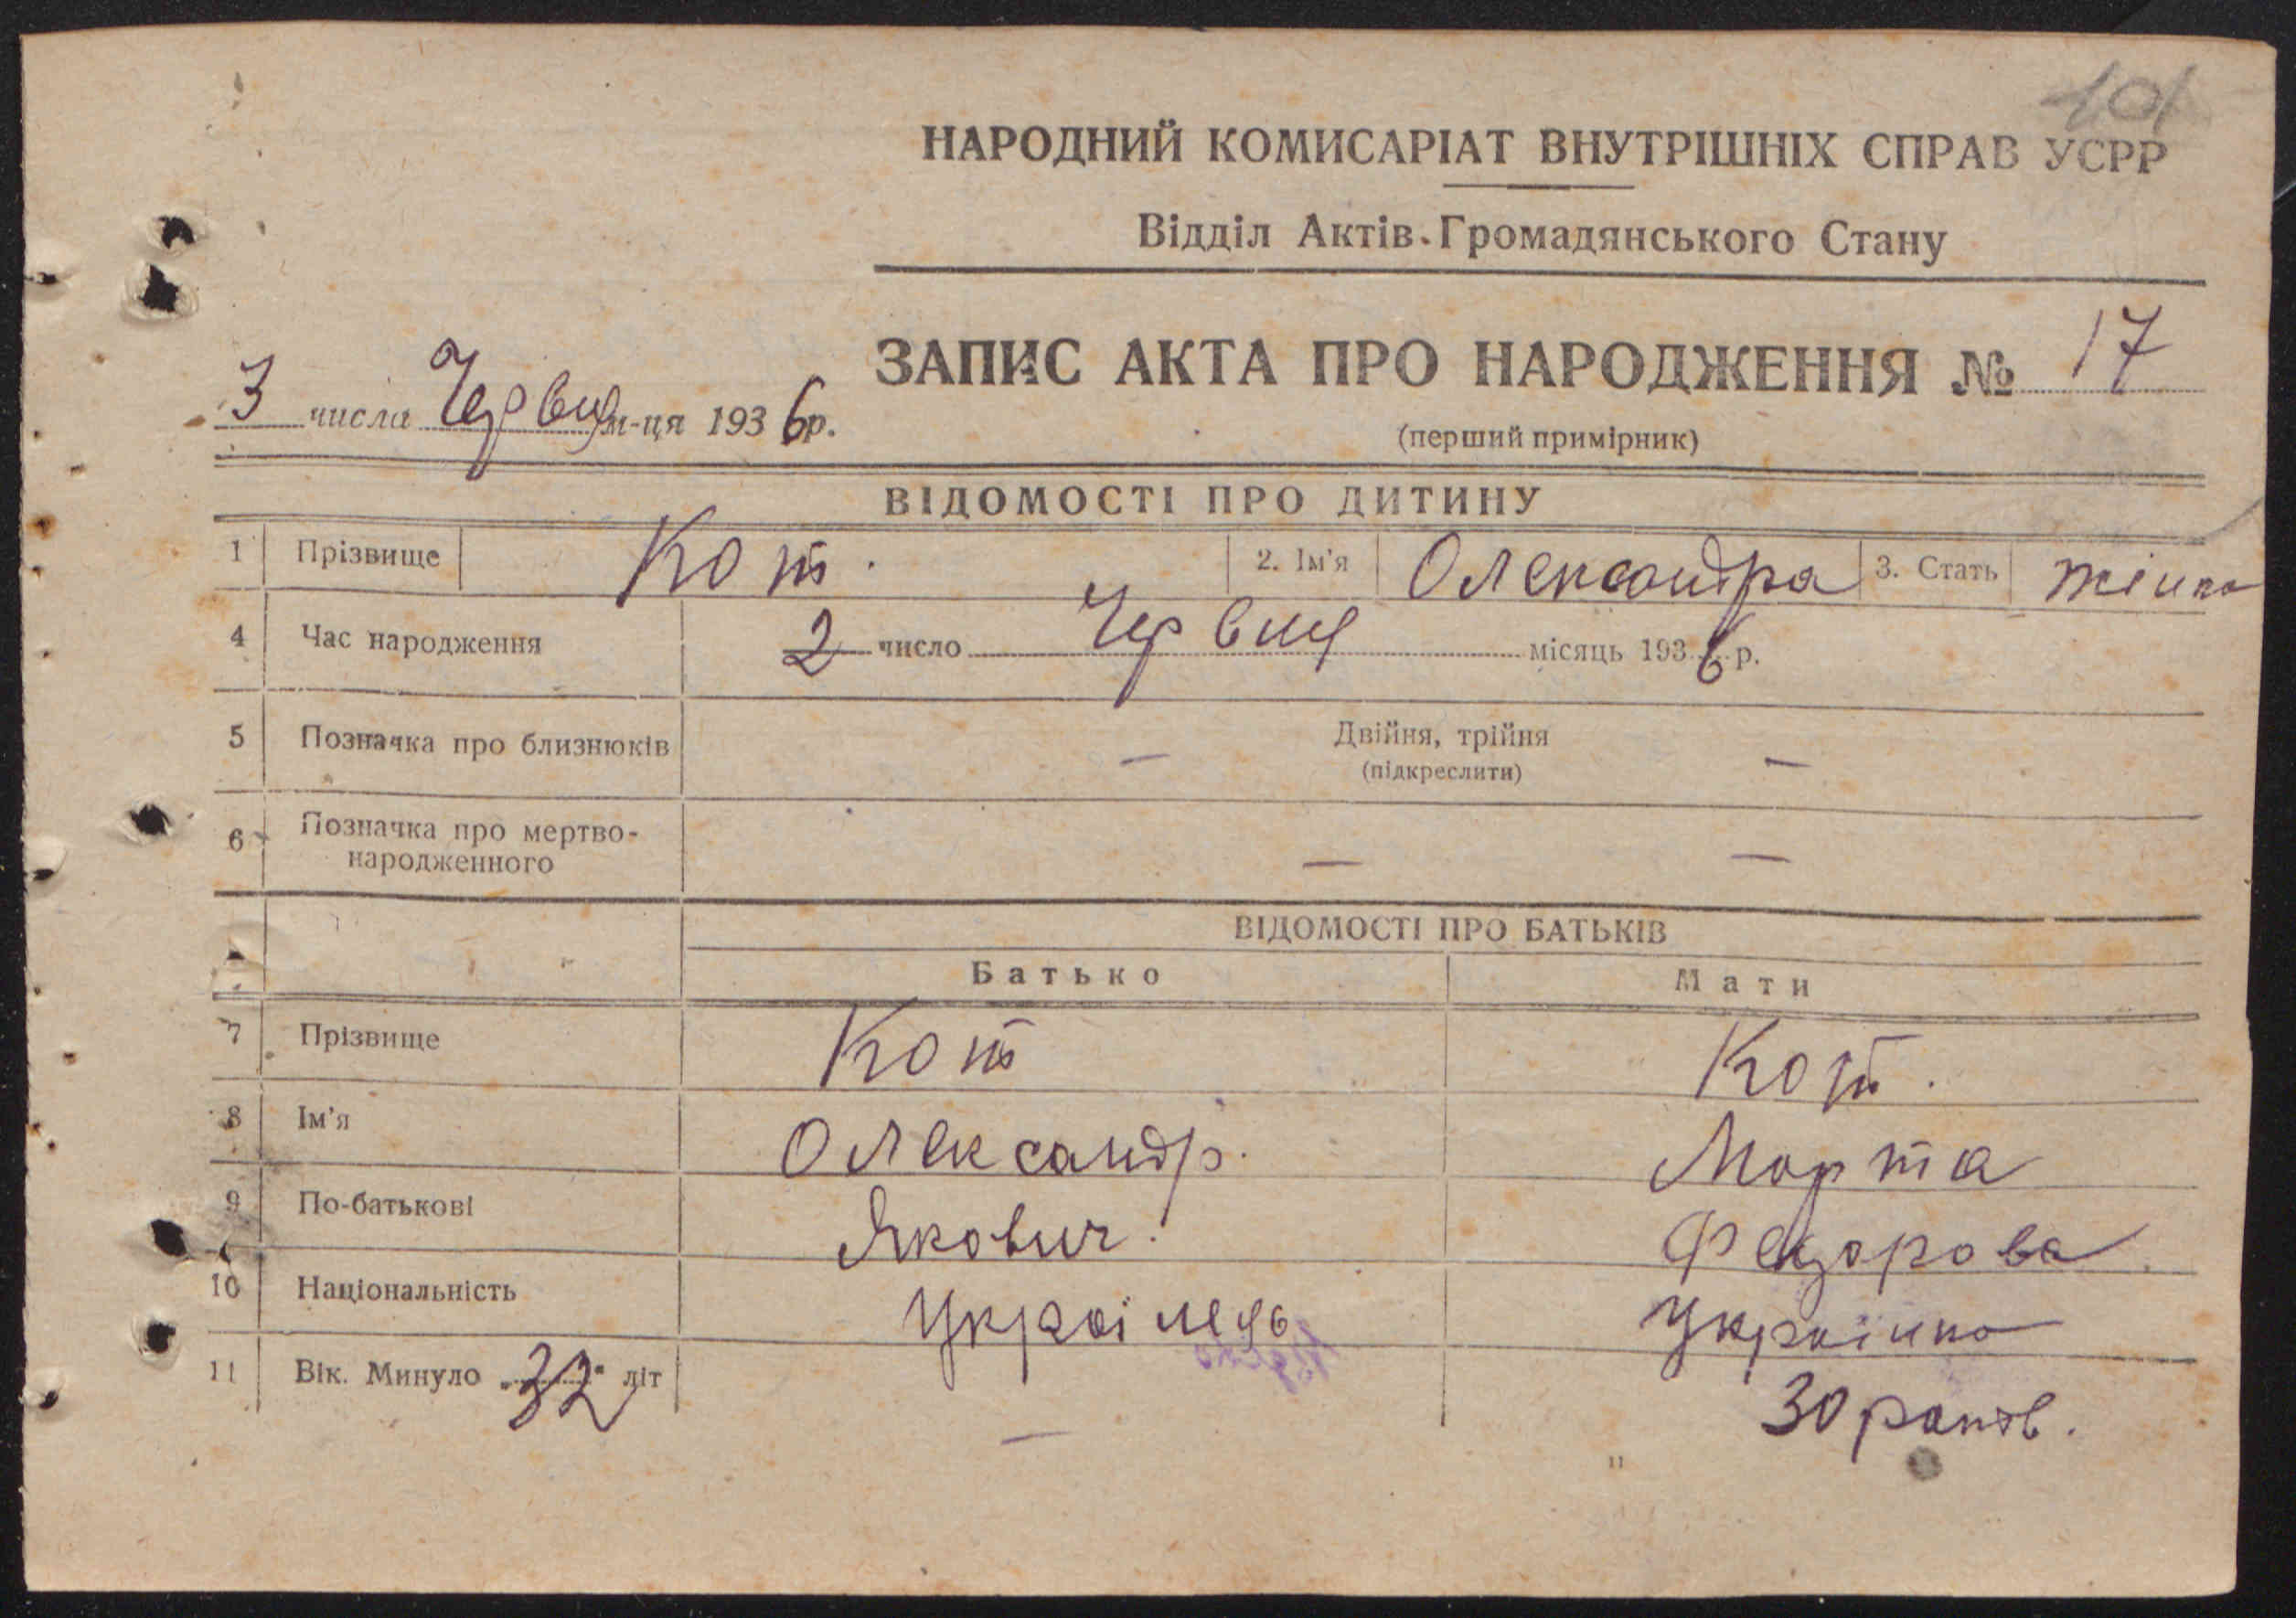 101
НАРОДНИЙ КОМИСАРІАТ ВНУТРІШНІХ СПРАВ УСРР
Відділ Актів Громадянського Стану
ЗАПИС АКТА ПРО НАРОДЖЕННЯ № 17
3 числа Червця м-ця 1936 р.
(перший примірник)
ВІДОМОСТІ ПРО ДИТИНУ
1 Прізвище Кот. 2. Ім'я Олександра 3. Стать жінка
4 Час народження 2 число Червця місяць 1936 р.
5 Позначка про близнюків — Двійня, трійня —
(підкреслити)
6 Позначка про мертво-
народженного — —
ВІДОМОСТІ ПРО БАТЬКІВ
Батько Мати
7 Прізвище Кот Кот.
8 Ім'я Олександр. Марта
9 По-батькові Якович. Федорова
10 Національність Украінець Украінка
11 Вік. Минуло „32" літ — 30 років.